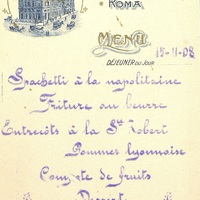 ROMA
MENU
DÉJEUNER du Jour
12-11-08
Spachetti à la napolitaine
Friture au beurre
Entrecôts à la Sce Robert
Pommes lyonnaise
Compote de fruits
Dessert